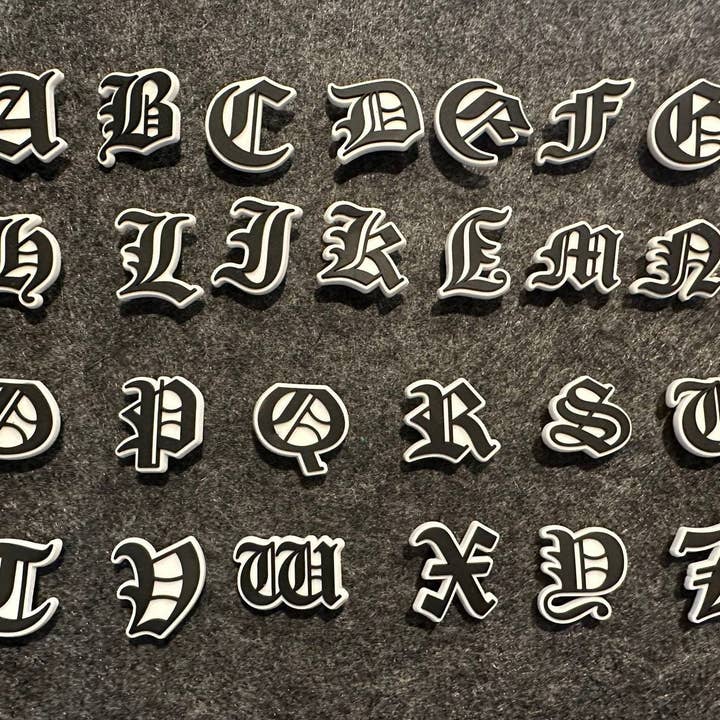 A B C D E F G
H L J K E M N
O P Q R S
T V W X Y Z